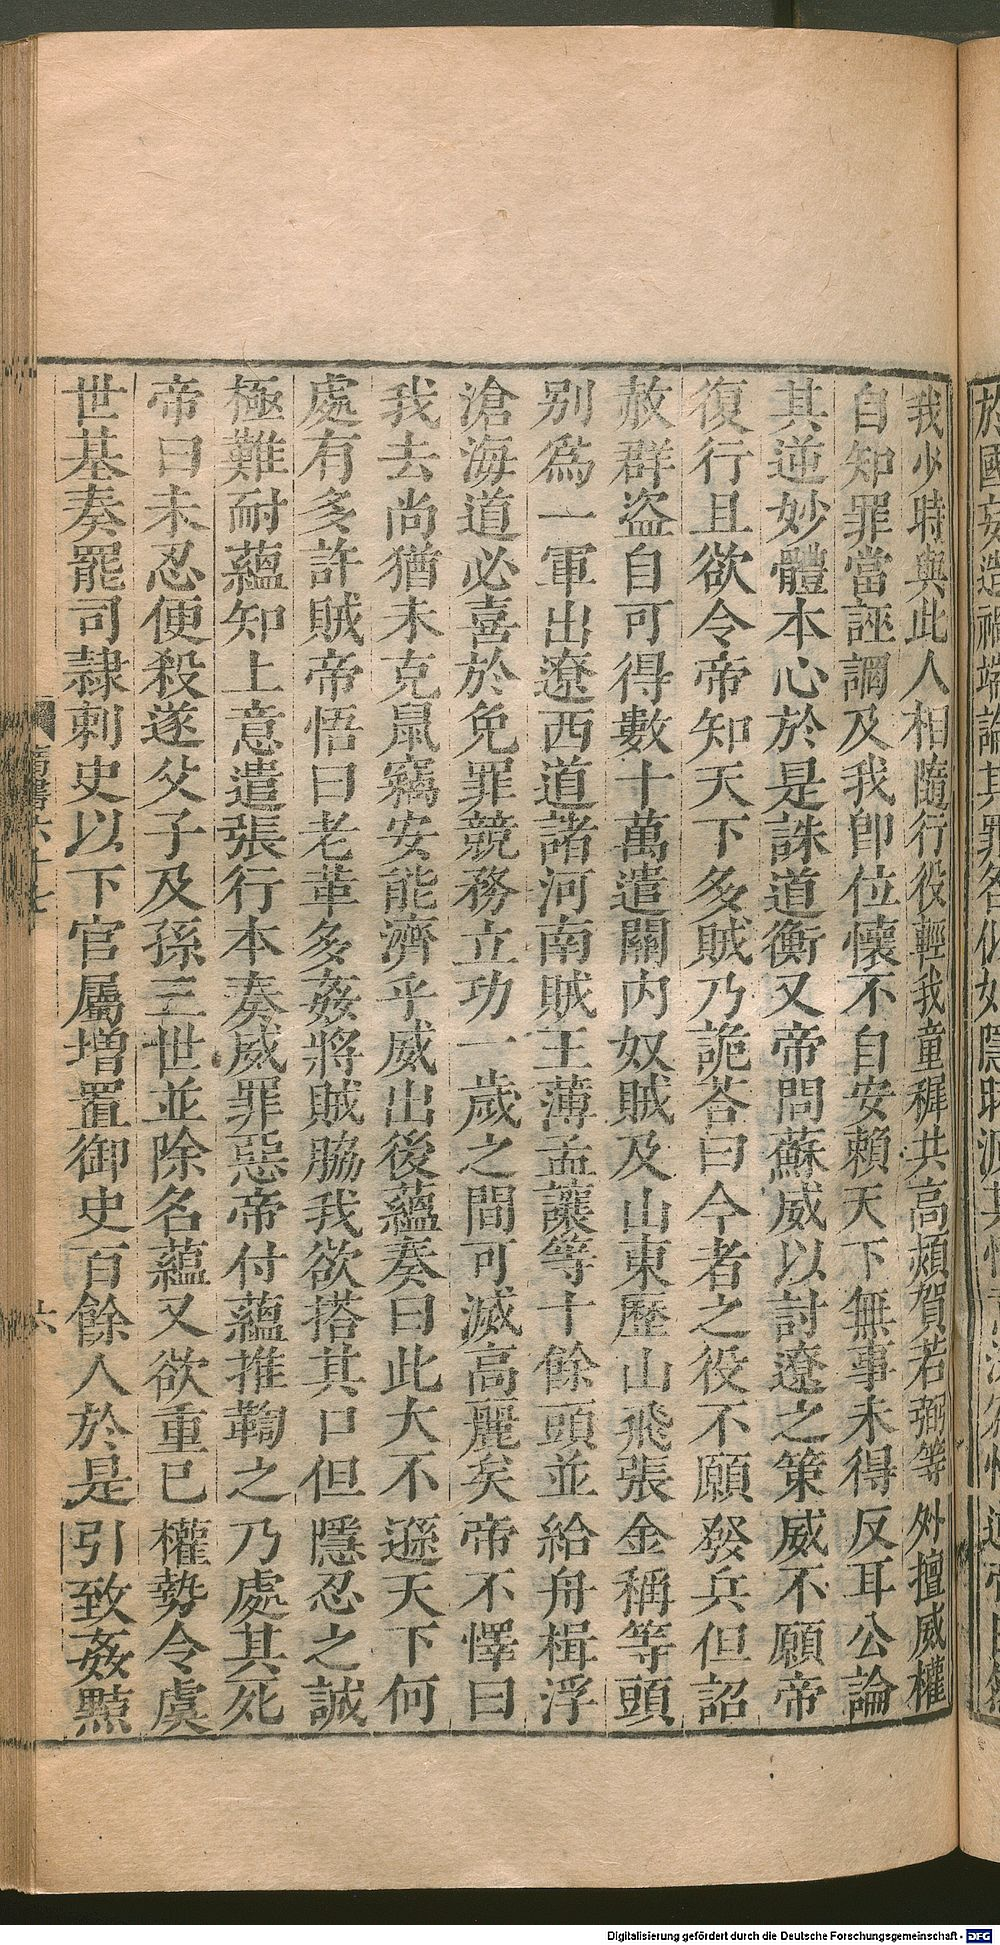 我少時與此人相隨行役輕我童穉共高熲賀若弼等外擅威權
自知罪當誣謂及我卽位懷不自安賴天下無事未得反耳公論
其逆妙體本心於是誅道衡又帝問蘇威以討遼之策威不願帝
復行且欲令帝知天下多賊乃詭荅曰今者之役不願發兵但詔
赦群盜自可得數十萬遣關內奴賊及山東歷山飛張金稱等頭
別爲一軍出遼西道諸河南賊王薄孟讓等十餘頭並給舟楫浮
滄海道必喜於免罪競務立功一歲之間可滅高麗矣帝不懌曰
我去尚猶未克鼠竊安能濟乎威出後蘊奏曰此大不遜天下何
處有多許賊帝悟曰老革多姦將賊脇我欲搭其口但隱忍之誠
極難耐蘊知上意遣張行本奏威罪惡帝付蘊推鞫之乃處其死
帝曰未忍便殺遂父子及孫三世並除名蘊又欲重已權勢令虞
世基奏罷司隷刺史以下官屬增置御史百餘人於是引致姦黠
六
Digitalisierung gefördert durch die Deutsche Forschungsgemeinschaft - DFG